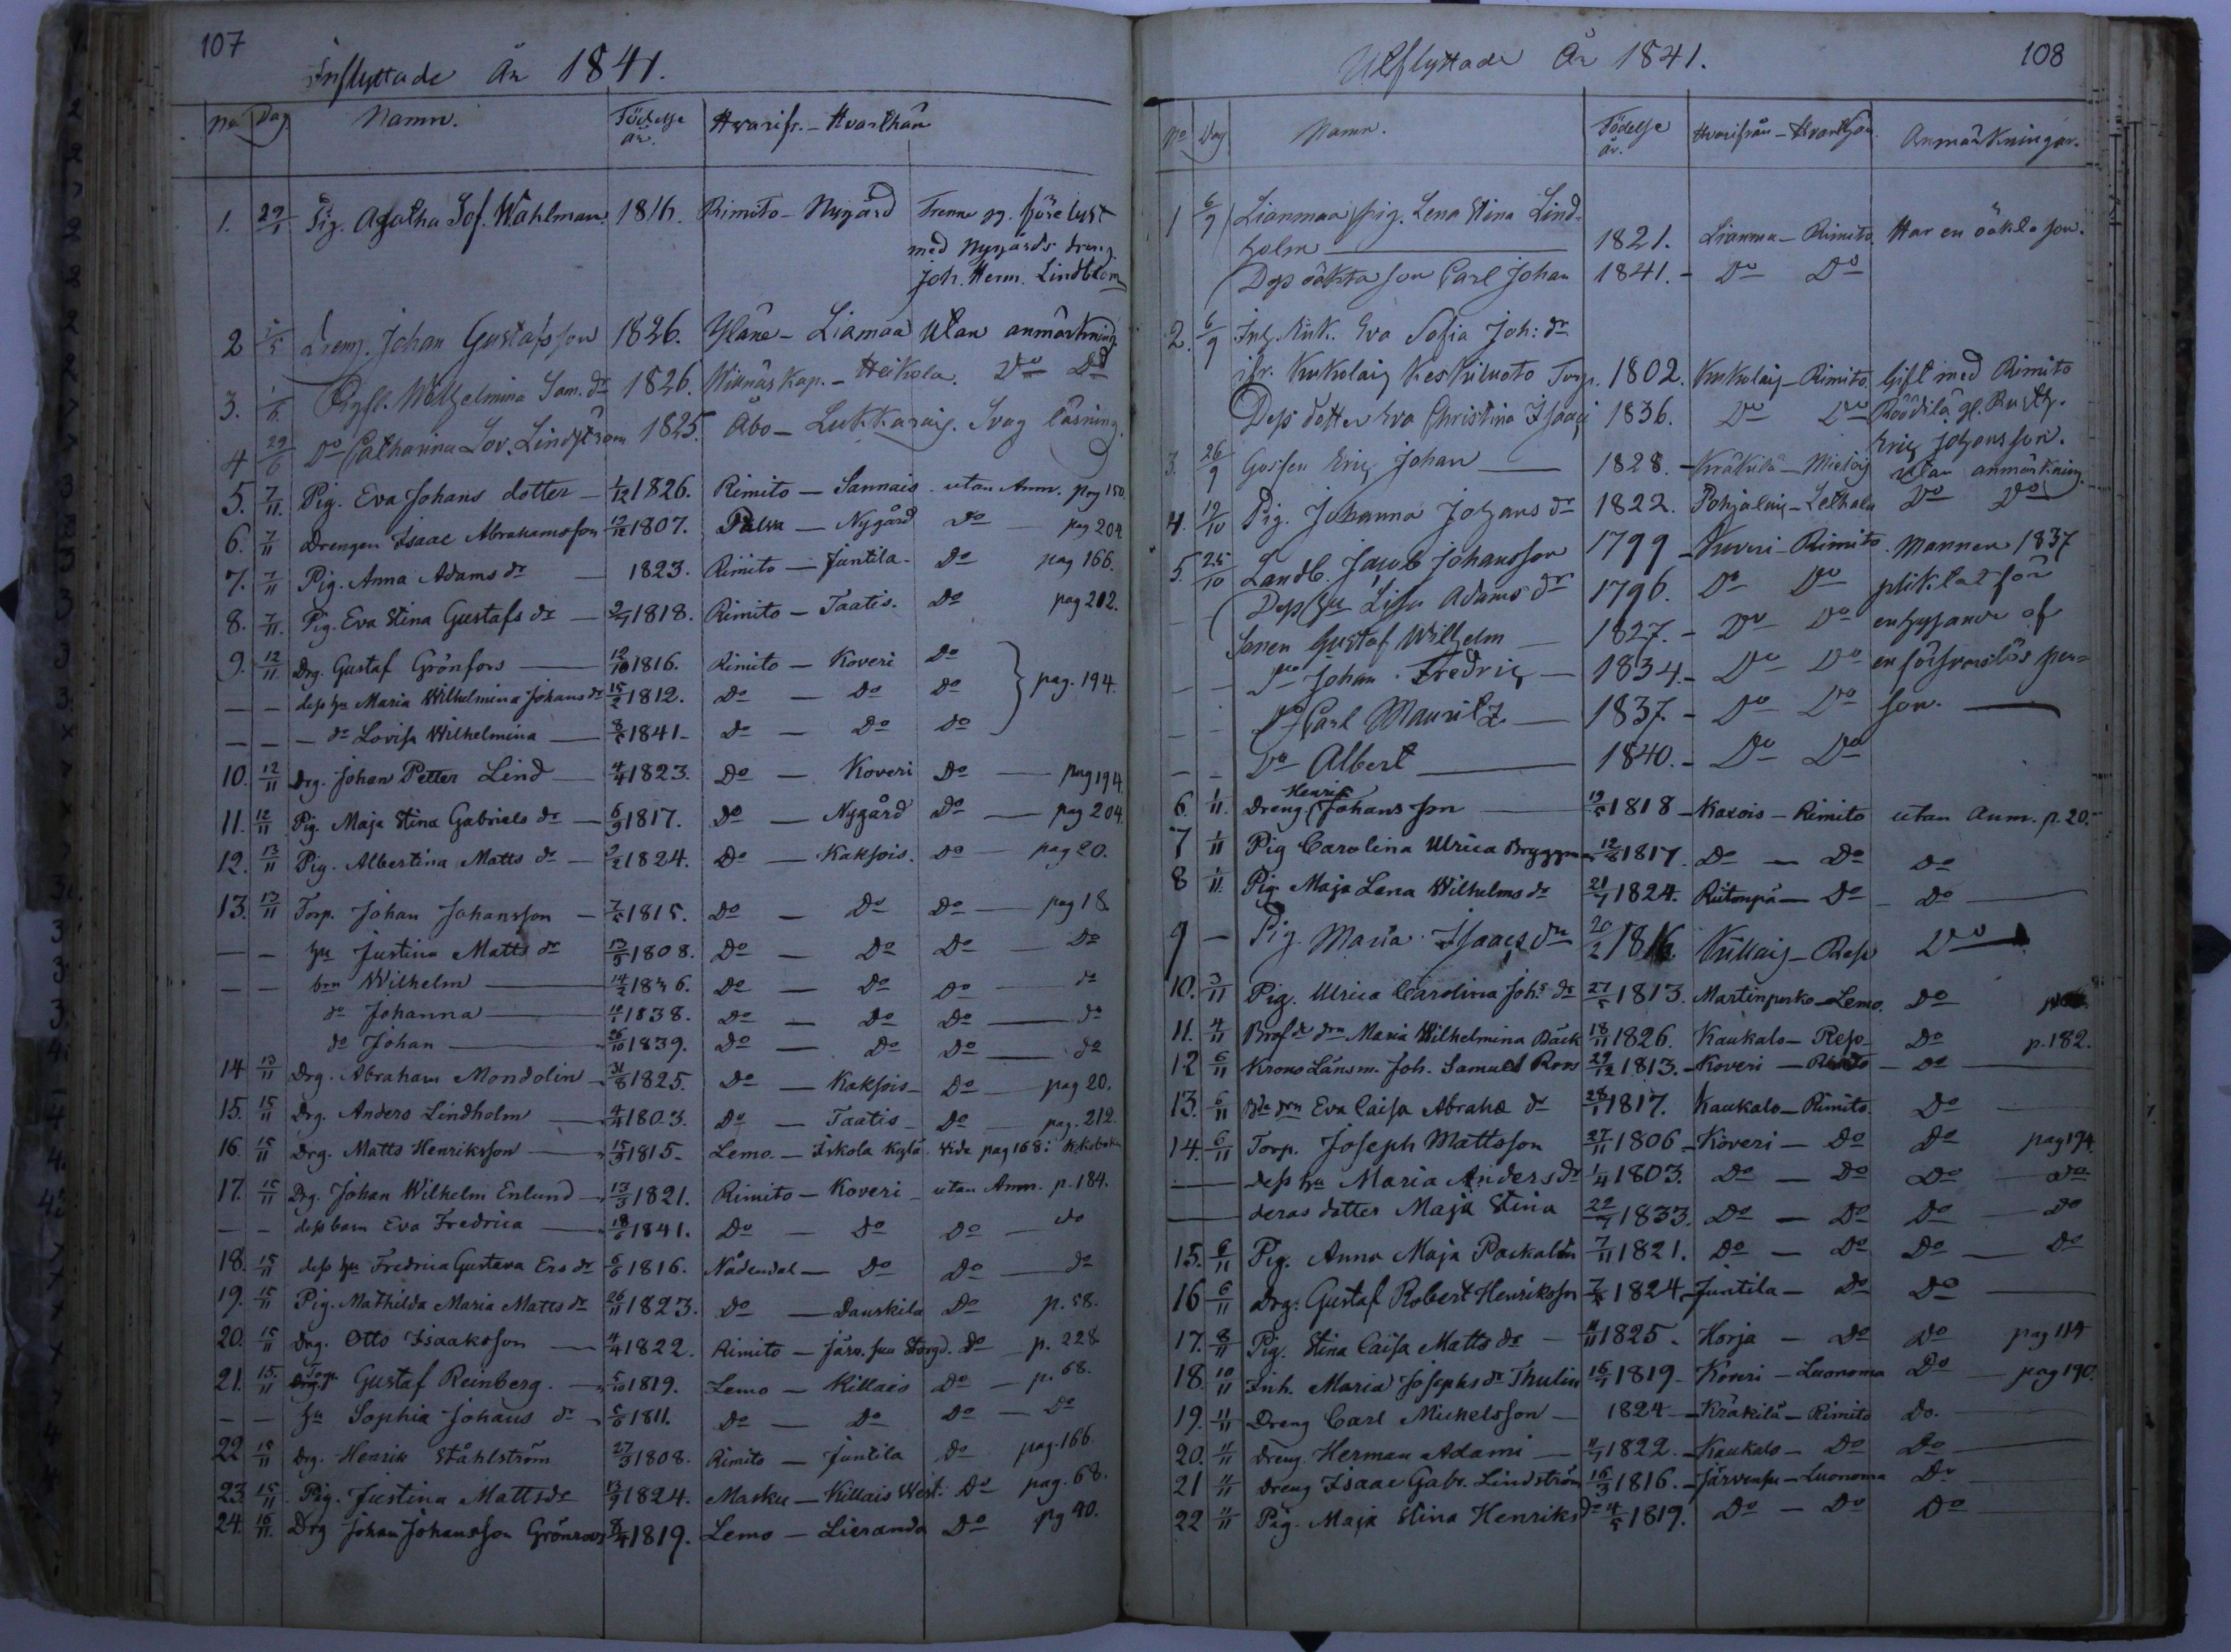 107
Inflyttade År 1841.
No Dag Namn. Födelse år. Hvarifr. - Hvarthän
1. 29/1 Pig. Agatha Sof. Wahlman. 1816. Rimito - Nygård Trenne gg. före lyst
med Nygårds dreng.
Joh. Herm. Lindblom
2 Dreng. Johan Gustafsson 1826. Yläne - Liamaa Utan anmärkning.
3. 1/6 Wilhelmina Sam. dr 1826. Kap. - Heikola. Do Do
4 29/6 Do Catharina Lov. Lindström 1825. Åbo - Lukkaraig. Svag läsning.
5. 7/11. Pig. Eva Johans dotter - 1/12 1826. Rimito - Sannais utan Anm. pag 150.
6. 7/11 Drengen Isaac Abrahamsson 12/12 1807. Nygård Do pag 204
7. 7/11 Pig. Anna Adams dr - 1823. Rimito - Juntila - Do pag 166.
8. 7/11. Pig. Eva Stina Gustafs dr - 2/7 1818. Rimito - Taatis. Do pag 212.
9. 12/11 Drg. Gustaf Grönfors - 12/10 1816. Rimito - Koveri Do
- - dess hu Maria Wilhelmina Johans dr 15/2 1812. Do - Do Do pag. 194.
- - - do Lovisa Wilhelmina - 8/5 1841 - Do - Do Do
10. 12/11 Drg. Johan Petter Lind - 4/4 1823. Do - Koveri Do - pag 194
11. 12/11 Pig. Maja Stina Gabriels dr - 6/9 1817. Do - Nygård Do - pag 204.
12. 13/11 Pig. Albertina Matts dr - 2/2 1824. Do - Kaksois. Do - pag 20.
13. 13/11 Torp. Johan Johansson - 7/5 1815. Do - Do Do - pag 18.
- - hu Justina Matts dr 13/5 1808. Do - Do Do - Do
- - brn Wilhelm - 14/2 1836. Do - Do Do - do
do Johanna - 1838. Do - Do Do - do
do Johan - 26/10 1839. Do - Do Do - do
14 13/11 Drg. Abraham Mondolin - 31/8 1825. Do - Kaksois - Do - pag 20.
15. 15/11 Drg. Anders Lindholm - 4/4 1803. Do - Taatis - Do - pag. 212.
16. 15/11 Drg. Matts Henriksson - 15/3 1815 - Lemo. - Iskola Kylä. Vide pag 168: Kkoboken
17. 15/11 Drg. Johan Wilhelm Enlund - 13/3 1821. Rimito - Koveri - utan Anm. p. 184.
- - dess barn Eva Fredrica - 18/6 1841. Do - Do Do - do
18. 15/11 dess hu Fredrica Gustava Ers dr 6/6 1816. Nådendal - Do Do - do
19. 15/11 Pig. Mathilda Maria Matts dr 26/11 1823. Do - Danskila Do p. 58.
20. 15/11 Drg. Otto Isaaksson - 4/4 1822. Rimito - Järv. suu Storgd. Do - p. 228
21. 15/11 Torp. Gustaf Reinberg. - 5/10 1819. Lemo - Killais Do - p. 68.
- - hu Sophia Johans dr - 5/6 1811. Do - Do Do - Do
22 15/11 Drg. Henrik Ståhlström 27/3 1808. Rimito - Juntila Do pag. 166.
23. 15/11. Pig. Justina Matts dr 13/9 1824. Masku - Killais West. Do pag. 68.
24. 16/11. Drg Johan Johansson Grönroos 1819. Lemo - Lieranda Do pg 90.
108
Utflyttade År 1841.
No Dag Namn. Födelse år. Hvarifrån - Hvarthän. Anmärkningar.
1 6/9 Lianmaa pig. Lena Stina Lind-
holm - 1821. Lianmaa - Rimito. Har en oäkta son.
Dess oäkta son Carl Johan 1841. - Do Do
2. 6/9 Inh. Enk. Eva Sofia Joh: dr
ifr. Kukolaig Keskiluoto Torp. 1802. Kukolaig - Rimito. Gift med Rimito
Dess dotter Eva Christina Isaaci 1836. Do Do Röödilä gl. Rusth.
Eric Johansson.
3. 26/9 Gossen Eric Johan - 1828. - Kräkilä - Mietoig utan anmärkning.
4. 12/10 Pig. Johanna Johans dr 1822. Pohjalaig - Lethala Do Do
5. 25/10 Landb. Jacob Johansson 1799 - Kuveri - Rimito. Mannen 1837
Dess hu Lisa Adams dr 1796. Do Do pliktat för
Sonen Gustaf Wilhelm - 1827. - Do Do enhysande af
Do Johan Fredric - 1834. - Do Do en försvarslös per=
Do Carl Mauritz - 1837. - Do Do son. -
Do Albert - 1840. - Do Do
6. 1/11. Dreng. Henrik Johansson - 19/5 1818 - Kaxois - Rimito utan Anm. p. 20.
7 1/11 Pig Carolina Ulrica Bryggman 12/8 1817. Do - Do Do
8 1/11. Pig. Maja Lena Wilhelms dr 21/7 1824. Do - Do -
9 - Pig. Maria Isaacs dr 20/2 1816. Killaig - Reso Do
10. 3/11 Pig. Ulrica Carolina Johs dr 27/5 1813. Martinperko - Lemo. Do
11. 4/11 Maria Wilhelmina Bäck 18/11 1826. Kaukalo - Reso - Do p. 182.
12 6/11 Krono Länsm. Joh. Samuel Roos 29/12 1813. - Koveri - Rimito - Do
13. 6/11 Eva Caisa Abrahs dr 28/1 1817. Kaukalo - Rimito. Do
14. 6/11 Torp. Joseph Mattsson 27/11 1806 - Koveri - Do Do pag 194.
- dess hu Maria Anders dr 1/4 1803. Do - Do Do - Do
- deras dotter Maja Stina 22/7 1833. Do - Do Do - Do
15. 6/11 Pig. Anna Maja Packalén 7/11 1821. Do - Do Do - Do
16 6/11 Drg. Gustaf Robert Henriksson 1824 - Juntila - Do Do -
17. 8/11 Pig. Stina Caisa Matts dr - 1825 - Horja - Do Do pag 114
18. 10/11 Inh. Maria Josephs dr Thulin 16/1 1819 - Koveri - Luonoma Do - pag 190.
19. 11/11 Dreng Carl Mickelsson - 1824 - Kräkilä - Rimito Do.
20. 11/11 Dreng. Herman Adami - 1822. - Kaukalo - Do Do
21 11/11 Dreng Isaac Gabr. Lindström 16/3 1816. - Järvensu - Luonoma Do
22 11/11 Pig. Maja Stina Henriks dr 4/5 1819. Do - Do Do